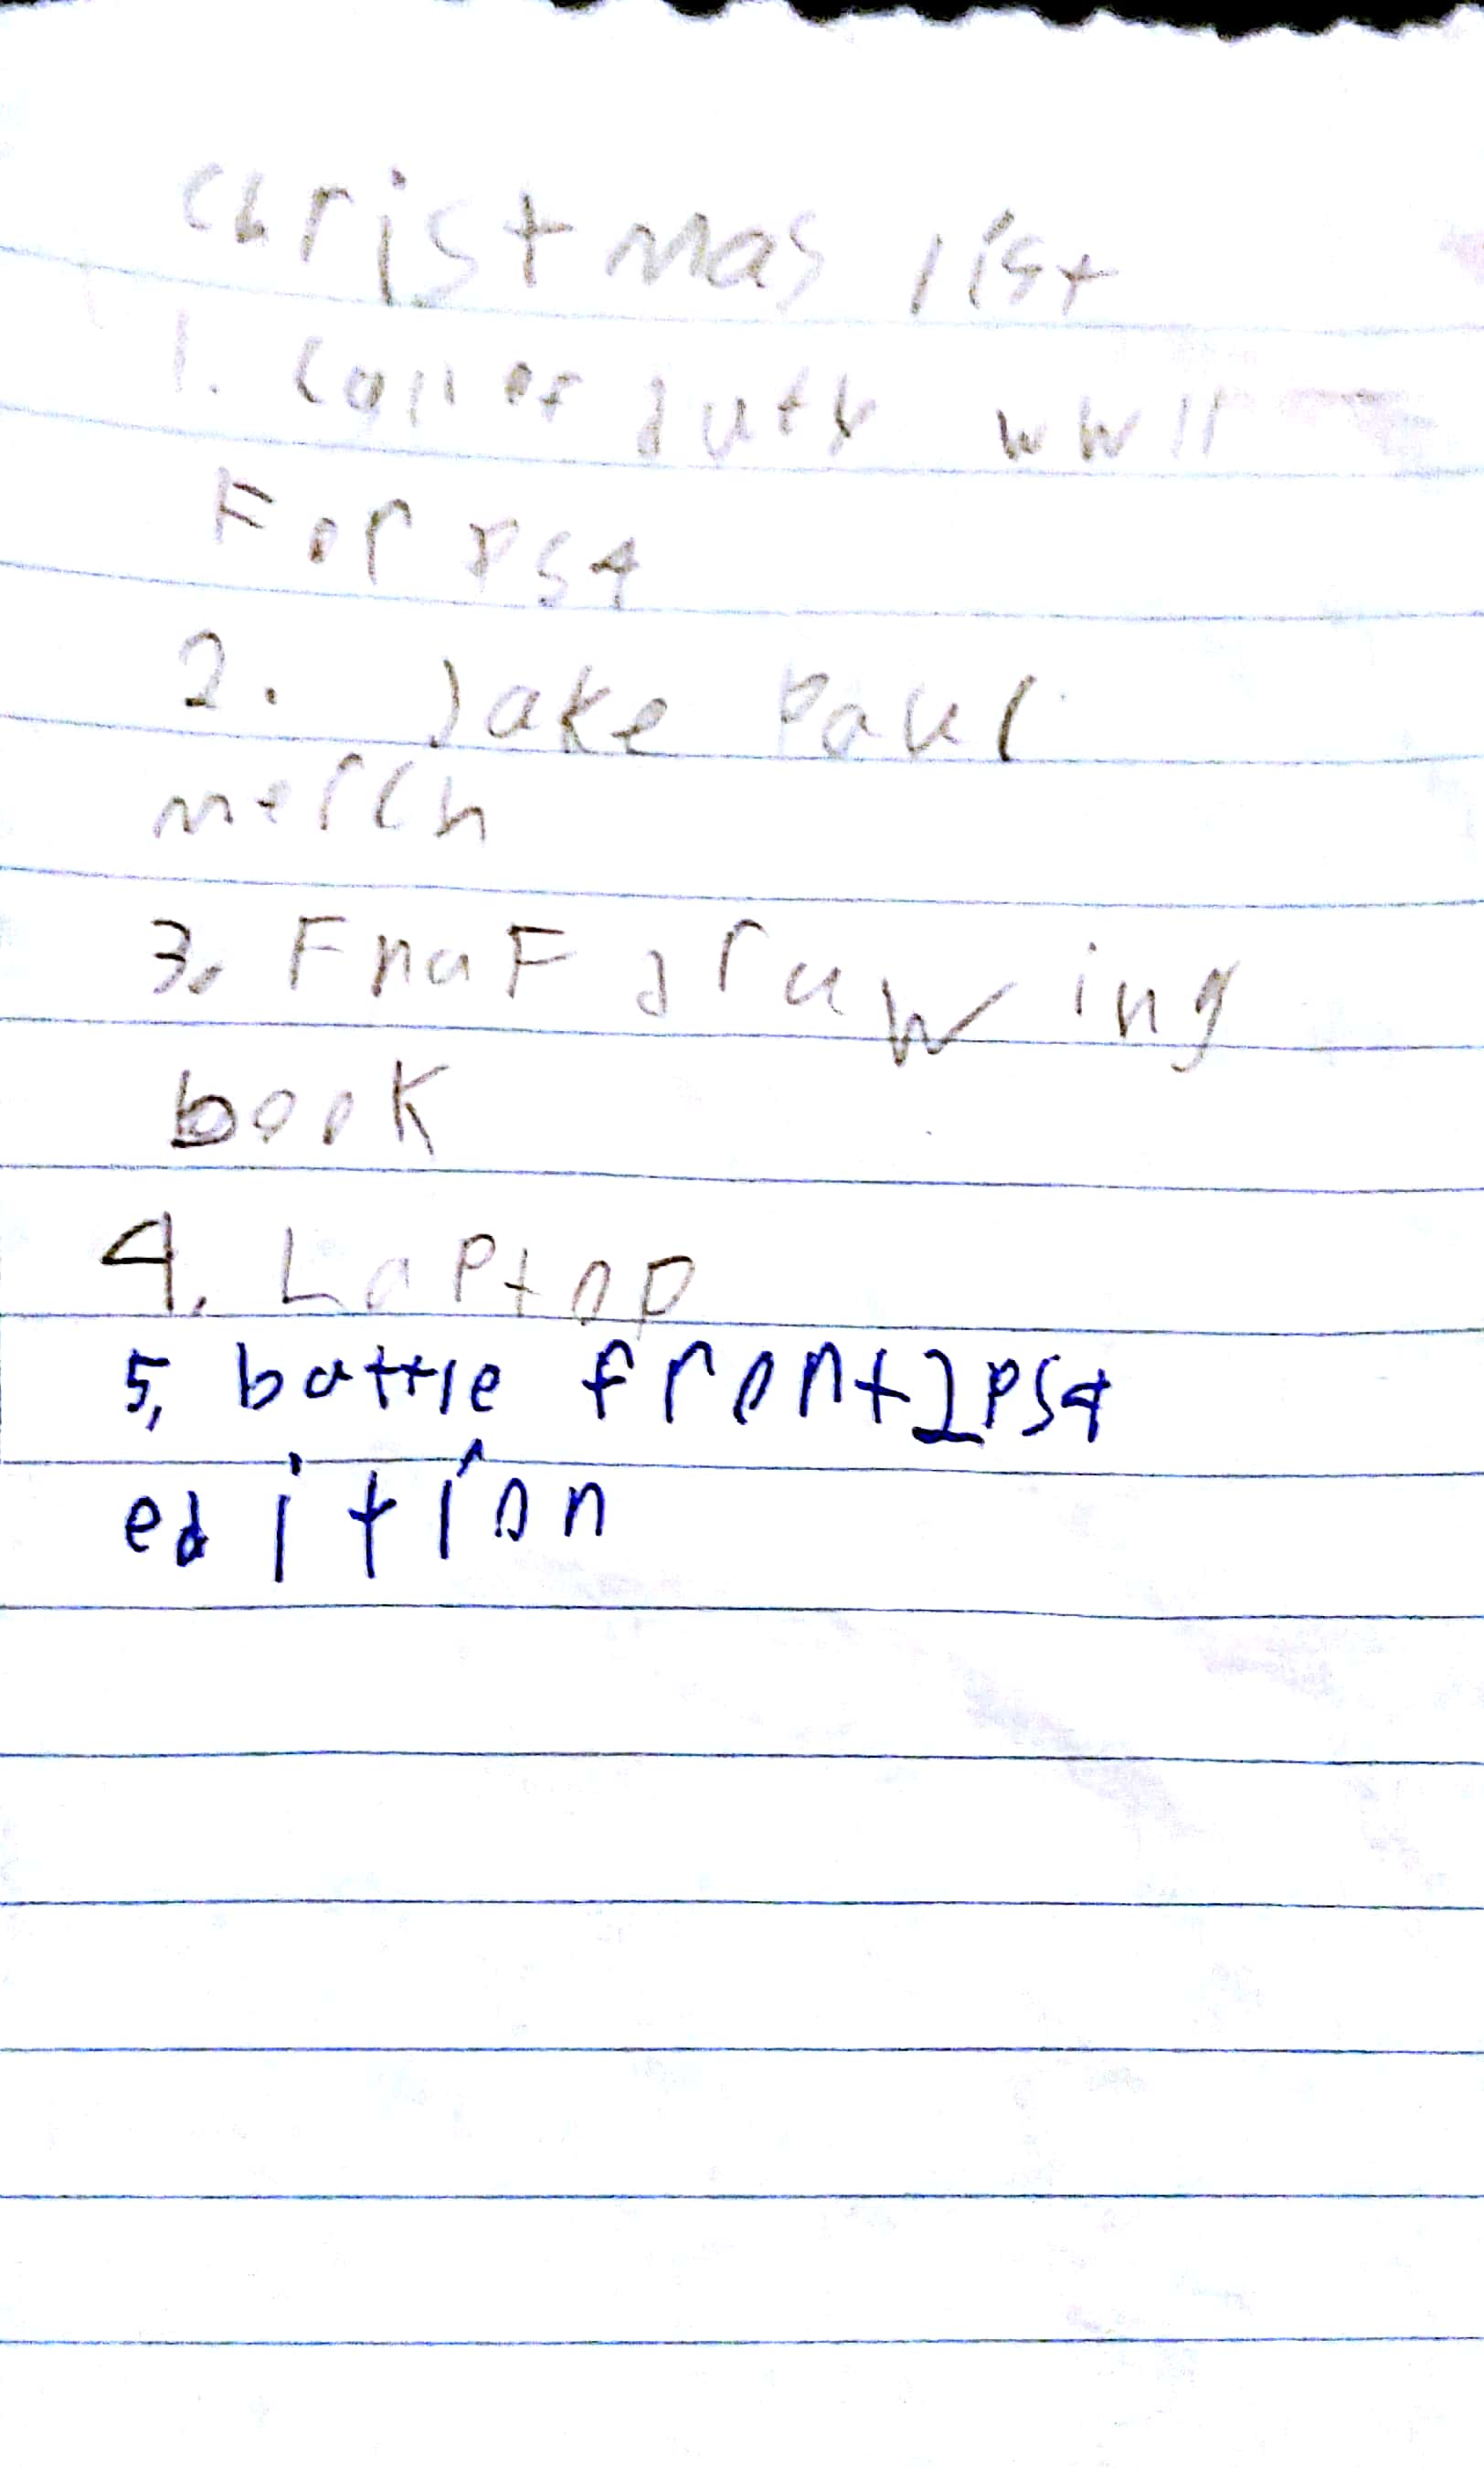 christmas list
1. Call of duty WWII
For PS4
2. Jake Paul
merch
3. FnaF drawing
book
4. Laptop
5, battle front2 PS4
edition